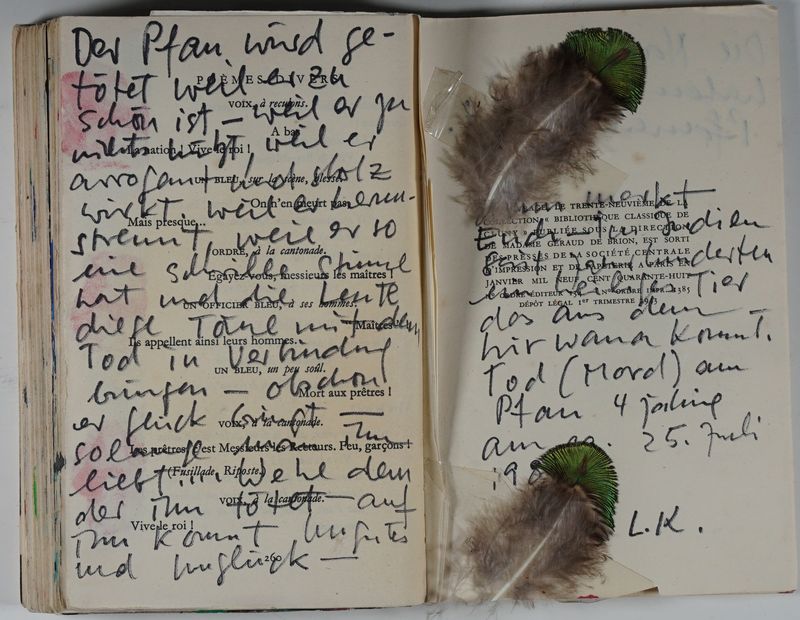 Der Pfau wird ge-
tötet weil er zu
schön ist – weil er zu
nichts nützt weil er
arrogant und stolz
wirkt weil er herum-
streunt weil er so
eine schrille Stimme
hat und die Leute
diese Töne mit dem
Tod in Verbindung
bringen – obschon
er glück bringt –
solange man ihn
liebt ... Wehe dem
der ihn tötet – auf
ihn kommt Ungutes
und Unglück –
POÈMES DIVERS
VOIX, à reculons.
A bas
La nation ! Vive le roi !
UN BLEU, sur la scène, glesse.
On n'en meurt pas,
Mais presque...
L'ORDRE, à la cantonade.
Égayez-vous, messieurs les maîtres !
UN OFFICIER BLEU, à ses hommes.
Maîtres !
Ils appellent ainsi leurs hommes.
UN BLEU, un peu soûl.
Mort aux prêtres !
VOIX, à la cantonade.
Les prêtres, c'est Messieurs les Recteurs. Feu, garçons !
(Fusillade, Riposte.)
VOIX, à la cantonade.
Vive le roi !
260
merkt
in Indien
ein heiliges Tier
das aus dem
Nirwana kommt.
Tod (Mord) am
Pfau 4 jährig
am 25. Juli
L.K.
LE TRENTE-NEUVIÈME DE LA
COLLECTION « BIBLIOTHÈQUE CLASSIQUE DE
CLUNY » PUBLIÉE SOUS LA DIRECTION
DE MADAME GÉRAUD DE BRION, EST SORTI
DES PRESSES DE LA SOCIÉTÉ CENTRALE
D'IMPRESSION ET DE PAPETERIE A PARIS EN
JANVIER MIL NEUF CENT QUARANTE-HUIT
N° ORDRE ÉDITEUR N° ORDRE IMPR. 1385
DÉPÔT LÉGAL 1er TRIMESTRE